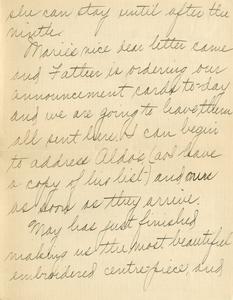 she can stay until after the
ninth.
Marie's nice dear letter came
and Father is ordering our
announcement cards to-day
and we are going to have them
all sent here. I can begin
to address Aldo's (as I have
a copy of his list) and
as soon as they arrive.
May has just finished
making us the most beautiful
embroidered centre-piece and